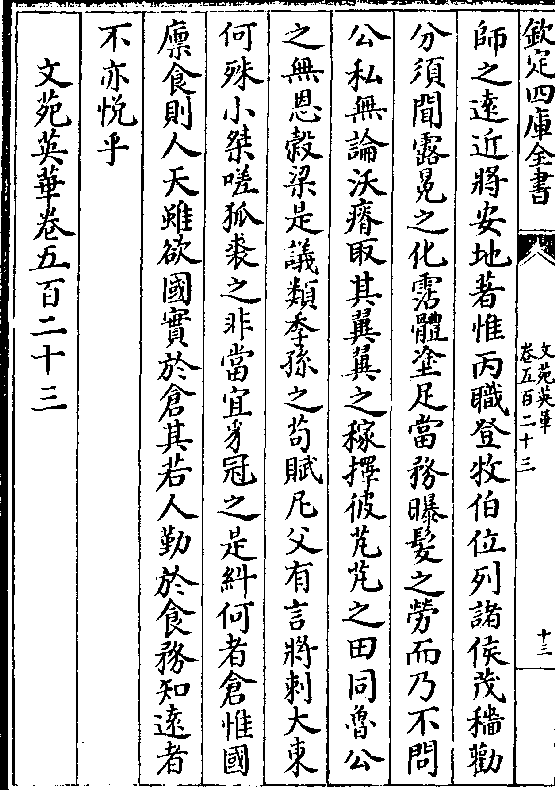 欽定四庫全書
文苑英華
卷五百二十三
十三
師之逺近將安地著惟丙職登牧伯位列諸侯茂穡勸
分須聞露冕之化霑體塗足當務曝髮之勞而乃不問
公私無論沃瘠取其薿薿之稼擇彼芃芃之田同魯公
之無恩穀梁是議類季孫之苟賦尼父有言將刺大東
何殊小桀嗟狐裘之非當宜豸冠之是糾何者倉惟國
廪食則人天雖欲國實於倉其若人勤於食務知逺者
不亦悦乎
文苑英華卷五百二十三